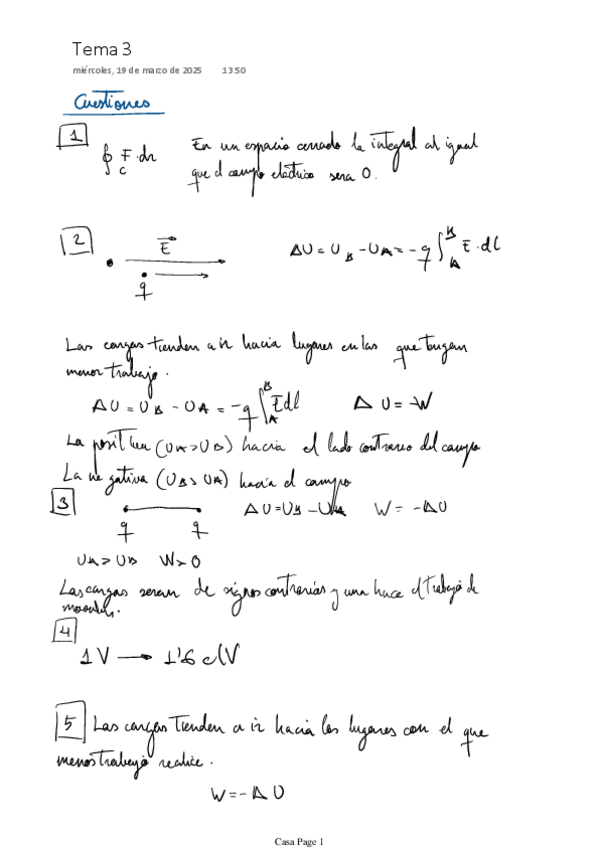 Tema 3
miércoles, 19 de marzo de 2025 13:50
Cuestiones
1 ∮ F·dr En un espacio cerrado la integral al igual
C que el campo eléctrico sera 0.
2 E ΔU = U_B - U_A = -q ∫_A^B E·dl
q
Las cargas tienden a ir hacia lugares en las que tengan
menor trabajo.
ΔU = U_B - U_A = -q ∫_A^B E dl ΔU = -W
La positiva (U_A > U_B) hacia el lado contrario del campo
La negativa (U_B > U_A) hacia el campo
3 q q ΔU = U_B - U_A W = -ΔU
U_A > U_B W > 0
Las cargas seran de signos contrarias y una hace el trabajo de
4
1V → 1'6 eV
5 Las cargas tienden a ir hacia los lugares con el que
menos trabajo realice.
W = -ΔU
Casa Page 1